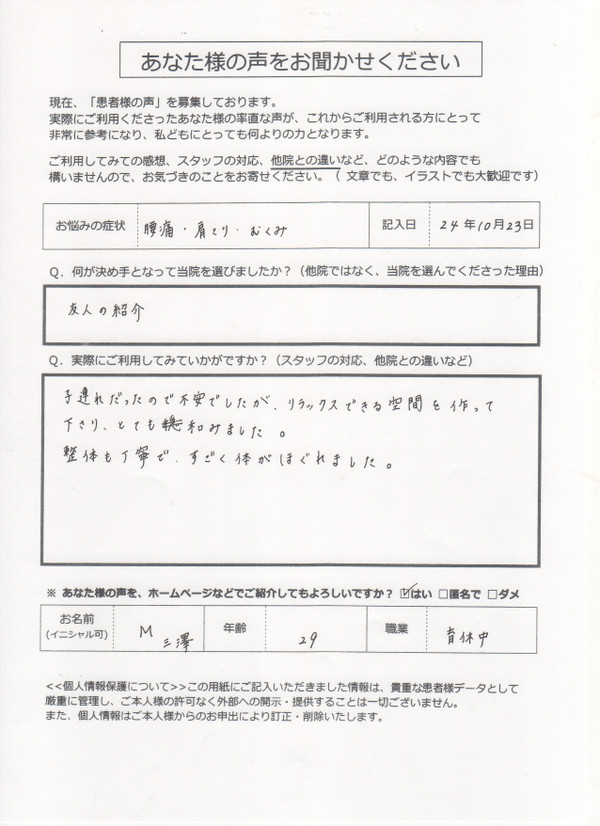 あなた様の声をお聞かせください
現在、「患者様の声」を募集しております。
実際にご利用くださったあなた様の率直な声が、これからご利用される方にとって
非常に参考になり、私どもにとっても何よりの力となります。
ご利用してみての感想、スタッフの対応、他院との違いなど、どのような内容でも
構いませんので、お気づきのことをお寄せください。（ 文章でも、イラストでも大歓迎です）
お悩みの症状 腰痛・肩こり・むくみ 記入日 24年10月23日
Q．何が決め手となって当院を選びましたか？（他院ではなく、当院を選んでくださった理由）
友人の紹介
Q．実際にご利用してみていかがですか？（スタッフの対応、他院との違いなど）
子連れだったので不安でしたが、リラックスできる空間を作って
下さり、とても和みました。
整体も丁寧で、すごく体がほぐれました。
※ あなた様の声を、ホームページなどでご紹介してもよろしいですか？ ☑はい □匿名で □ダメ
お名前 M 三澤 年齢 29 職業 育休中
(イニシャル可)
<<個人情報保護について>>この用紙にご記入いただきました情報は、貴重な患者様データとして
厳重に管理し、ご本人様の許可なく外部への開示・提供することは一切ございません。
また、個人情報はご本人様からのお申出により訂正・削除いたします。